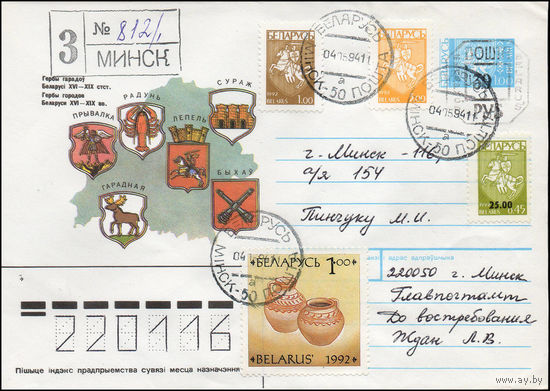 З № 812/1
МИНСК
Гербы гарадоў
Беларусі XVI—XIX стст.
Гербы городов
Беларуси XVI—XIX вв.
ПРЫВАЛКА
РАДУНЬ
ЛЕПЕЛЬ
СУРАЖ
ГАРАДНАЯ
БЫХАЎ
БЕЛАРУСЬ
1992
BELARUS
1.00
БЕЛАРУСЬ
1992
BELARUS
ПОШТА
БЕЛАРУСЬ
МІНСК-50 ПОШТА
а
БЕЛАРУСЬ
25.00
1992
BELARUS
0.45
г. Минск - 116,
а/я 154
Пинчуку М. И.
БЕЛАРУСЬ 1.00
BELARUS' 1992
адрас адпраўшчыка
220050 г. Минск
Главпочтамт
До востребования
Ждан Л. В.
220116
Пішыце індэкс прадпрыемства сувязі месца назначэння
www.ay.by